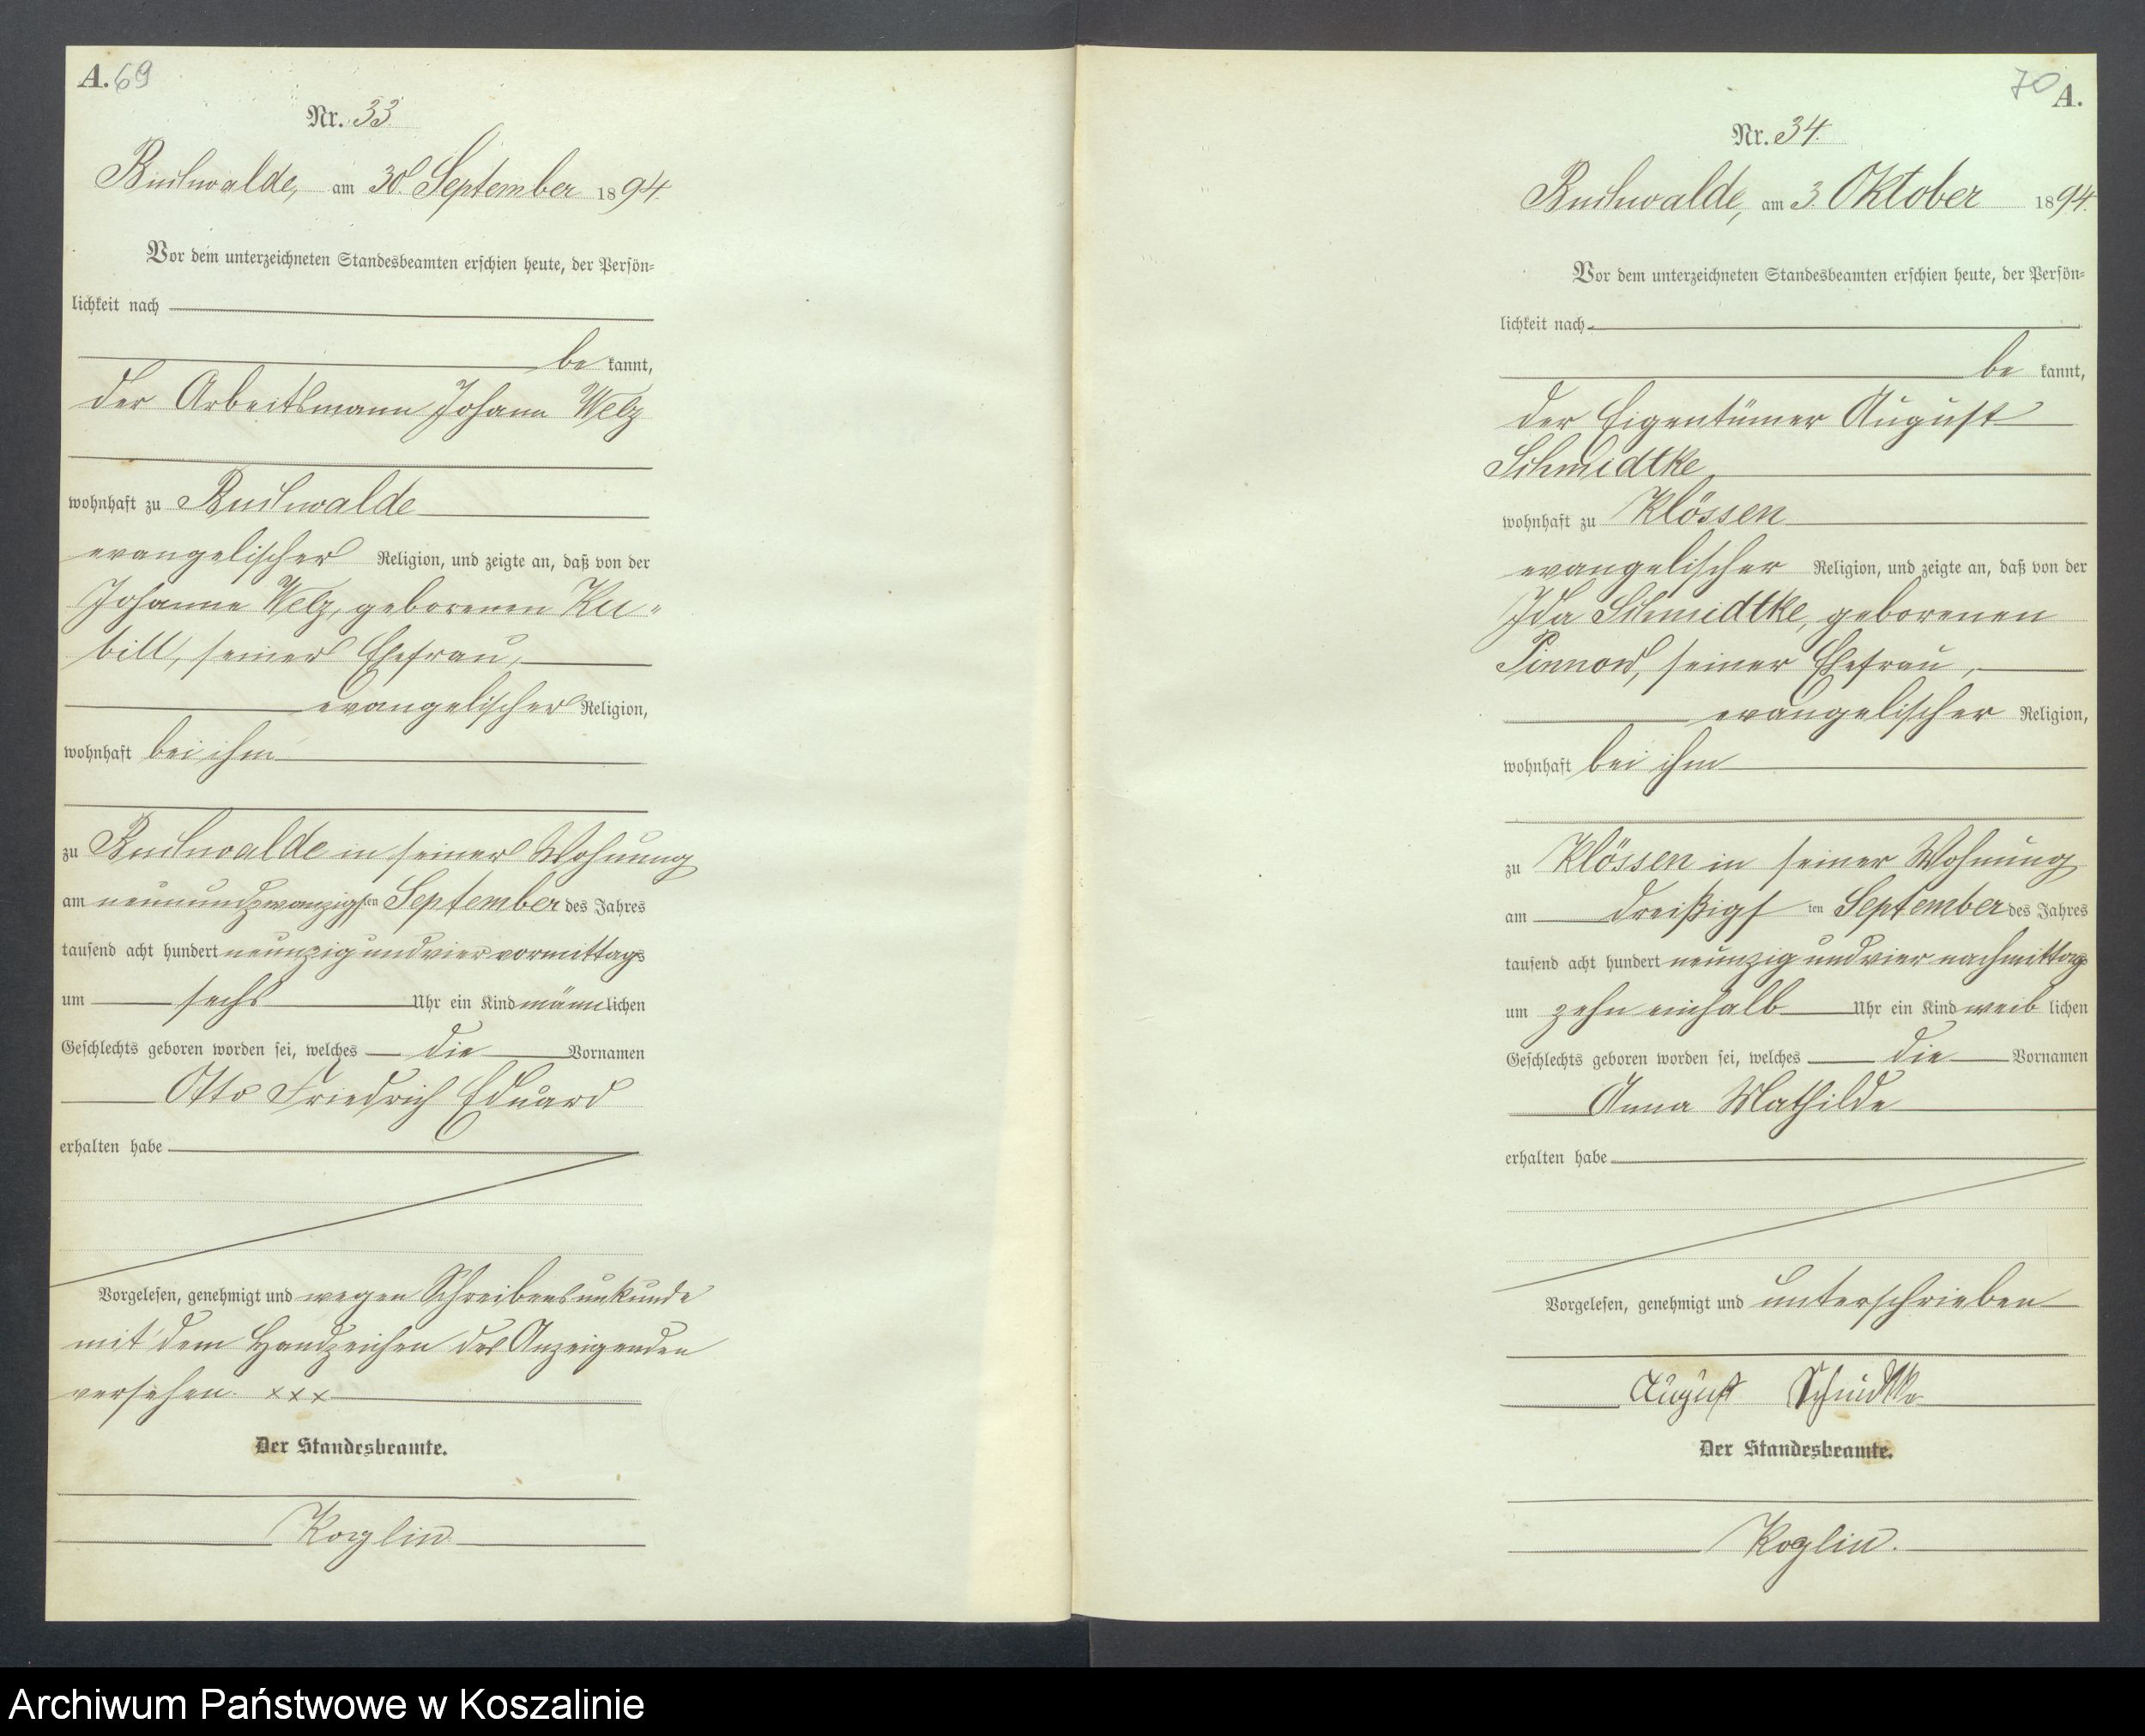 A. 69
Nr. 33
Buchwalde, am 30. September 1894.
Vor dem unterzeichneten Standesbeamten erschien heute, der Persön=
lichkeit nach
be kannt,
der Arbeitsmann Johann Welz
wohnhaft zu Buchwalde
evangelischer Religion, und zeigte an, daß von der
Johanne Welz, geborenen Ku=
bill, seiner Ehefrau,
evangelischer Religion,
wohnhaft bei ihm
zu Buchwalde in seiner Wohnung
am neunundzwanzigsten September des Jahres
tausend acht hundert neunzig und vier vormittags
um sechs Uhr ein Kind männlichen
Geschlechts geboren worden sei, welches die Vornamen
Otto Friedrich Eduard
erhalten habe
Vorgelesen, genehmigt und wegen Schreibensunkunde
mit dem Handzeichen des Anzeigenden
versehen. xxx
Der Standesbeamte.
Koglin
70 A.
Nr. 34.
Buchwalde, am 3. Oktober 1894.
Vor dem unterzeichneten Standesbeamten erschien heute, der Persön=
lichkeit nach
be kannt,
der Eigentümer August
Schmidtke
wohnhaft zu Klössen
evangelischer Religion, und zeigte an, daß von der
Ida Schmidtke, geborenen
Pinnow, seiner Ehefrau,
evangelischer Religion,
wohnhaft bei ihm
zu Klössen in seiner Wohnung
am dreißigsten September des Jahres
tausend acht hundert neunzig und vier nachmittags
um zehn einhalb Uhr ein Kind weiblichen
Geschlechts geboren worden sei, welches die Vornamen
Anna Mathilde
erhalten habe
Vorgelesen, genehmigt und unterschrieben
August Schmidtke
Der Standesbeamte.
Koglin.
Archiwum Państwowe w Koszalinie